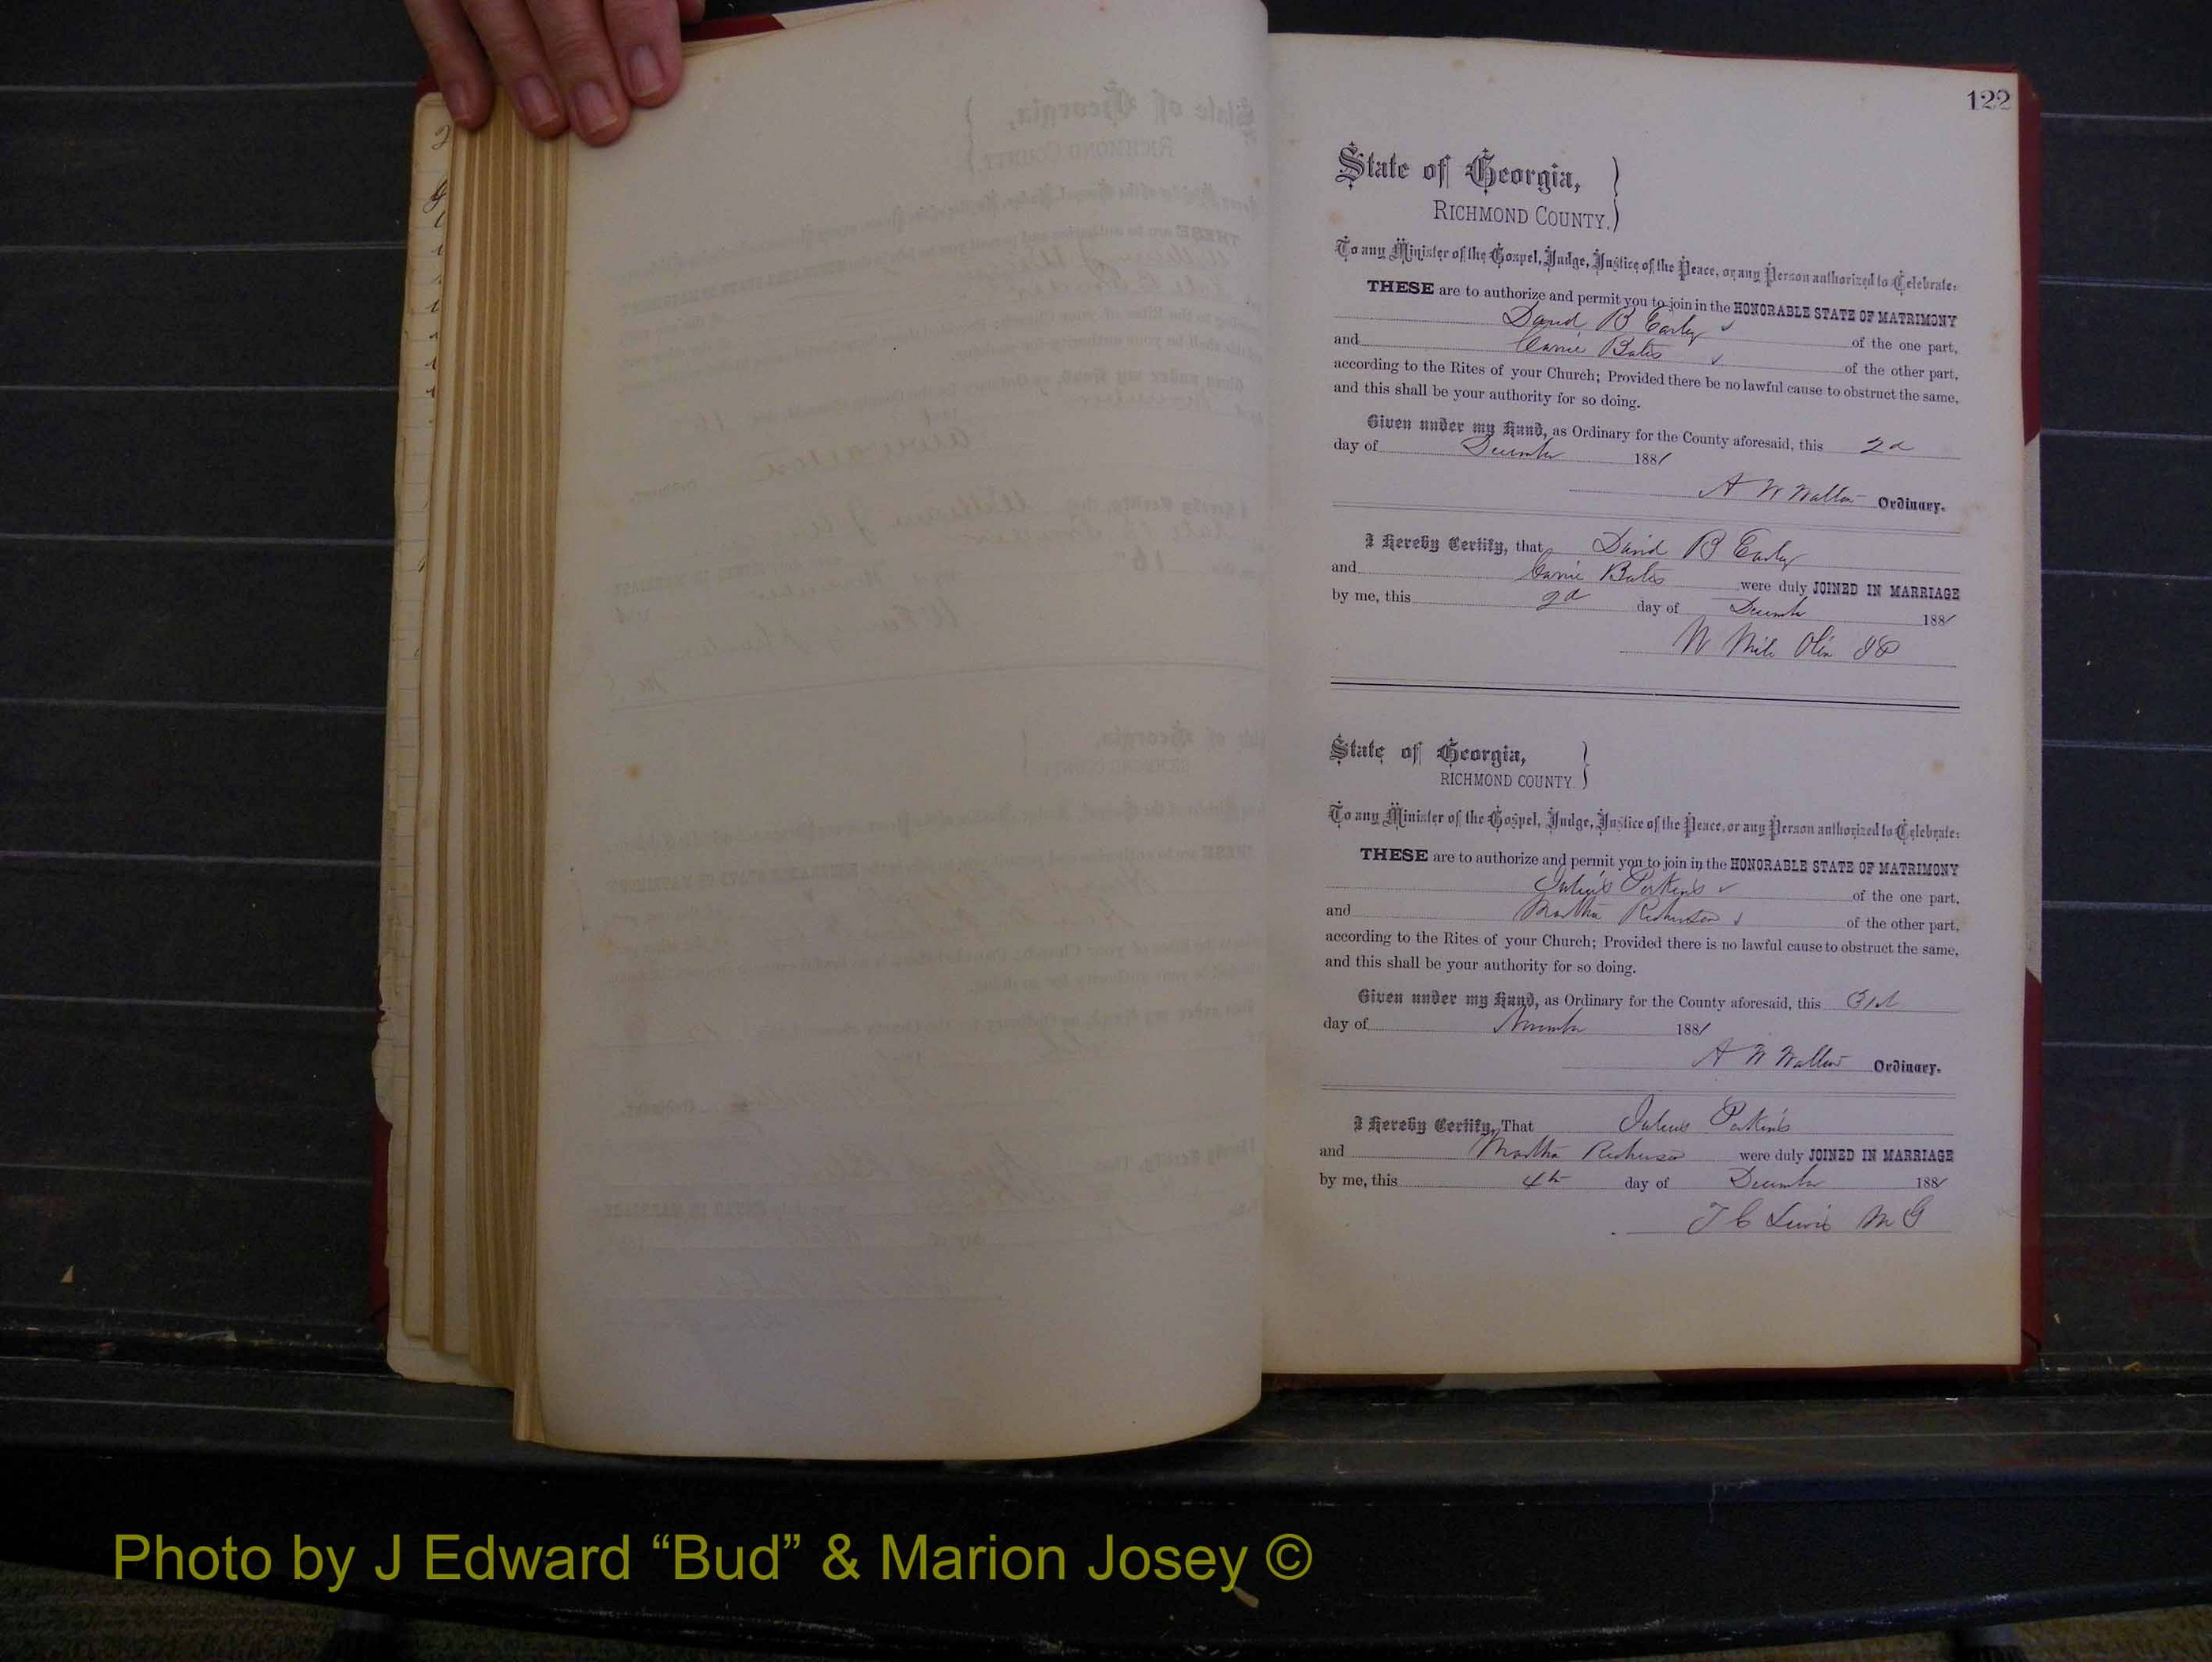 122
State of Georgia,
RICHMOND COUNTY.
To any Minister of the Gospel, Judge, Justice of the Peace, or any Person authorized to Celebrate:
THESE are to authorize and permit you to join in the HONORABLE STATE OF MATRIMONY
David B Early of the one part,
and Carrie Bates of the other part,
according to the Rites of your Church; Provided there be no lawful cause to obstruct the same,
and this shall be your authority for so doing.
Given under my Hand, as Ordinary for the County aforesaid, this 2d
day of December 1881
A W Walton Ordinary.
I Hereby Certify, that David B Early
and Carrie Bates were duly JOINED IN MARRIAGE
by me, this 2d day of December 1881
W Olin JP
State of Georgia,
RICHMOND COUNTY
To any Minister of the Gospel, Judge, Justice of the Peace, or any Person authorized to Celebrate:
THESE are to authorize and permit you to join in the HONORABLE STATE OF MATRIMONY
Julius Perkins of the one part,
and Martha Richerson of the other part,
according to the Rites of your Church; Provided there is no lawful cause to obstruct the same,
and this shall be your authority for so doing.
Given under my Hand, as Ordinary for the County aforesaid, this 31st
day of November 1881
A W Walton Ordinary.
I Hereby Certify, That Julius Perkins
and Martha Richerson were duly JOINED IN MARRIAGE
by me, this 4th day of December 1881
T C Lewis M G
Photo by J Edward “Bud” & Marion Josey ©